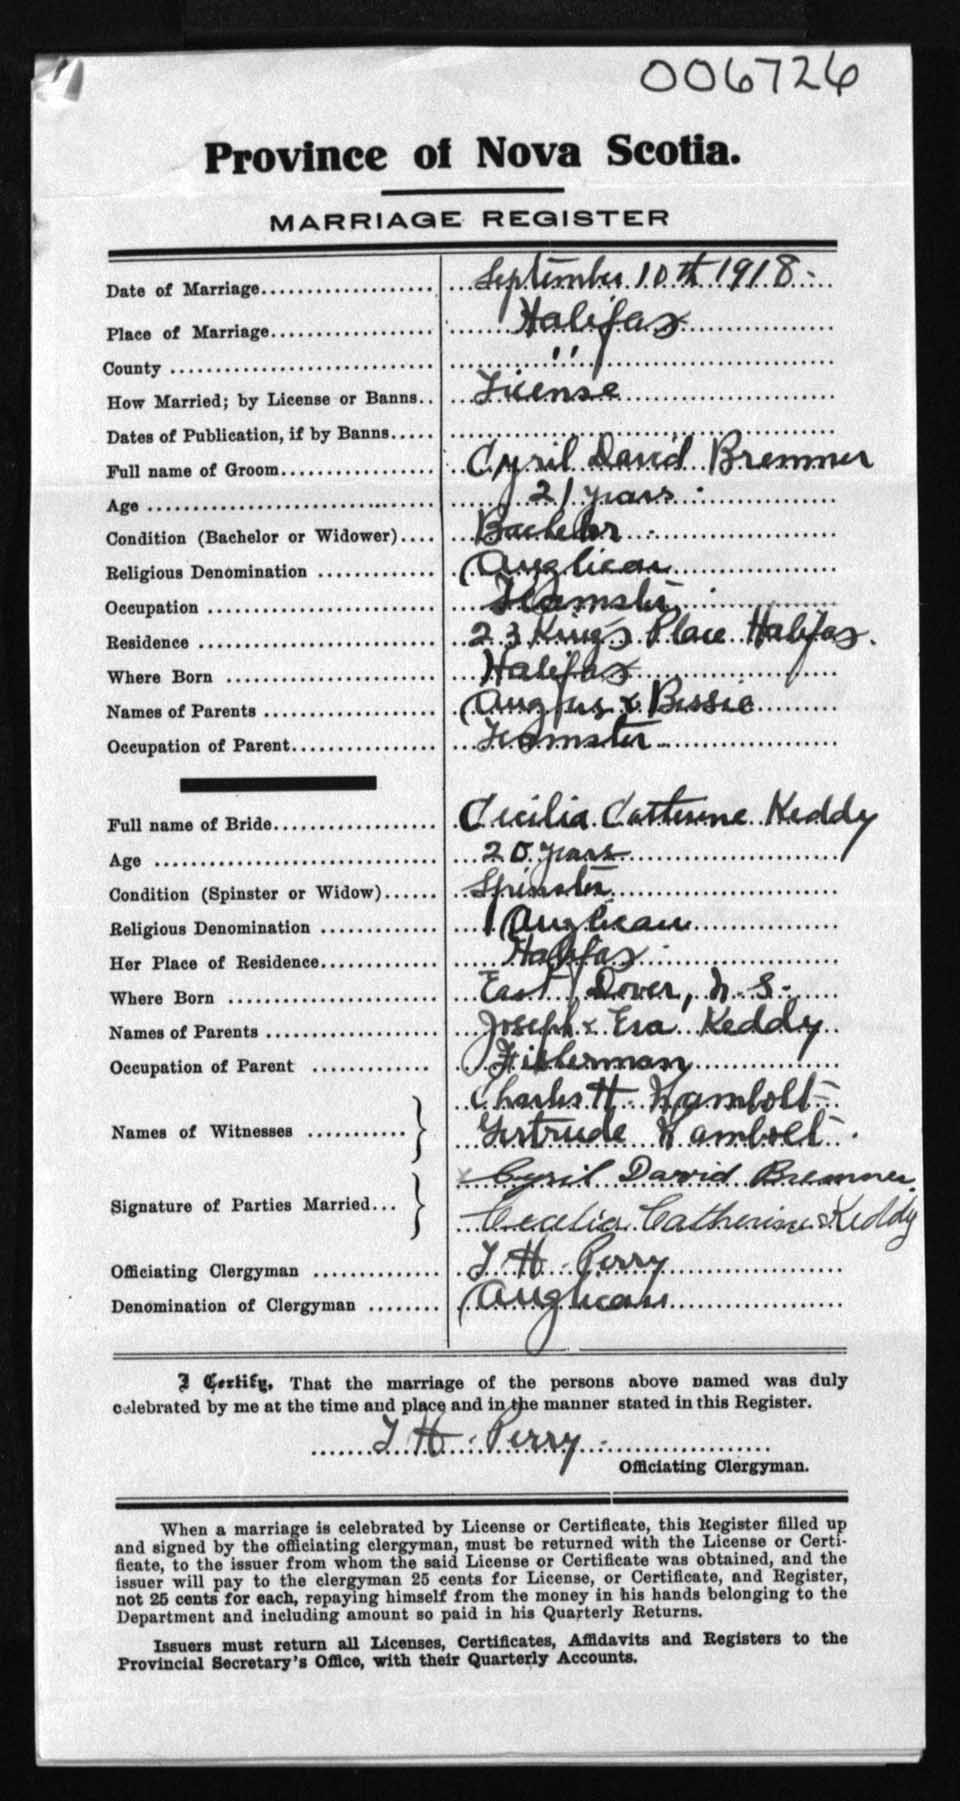 006726
Province of Nova Scotia.
MARRIAGE REGISTER
Date of Marriage.................... September 10th 1918
Place of Marriage.................. Halifax
County ............................. ''
How Married; by License or Banns.. License
Dates of Publication, if by Banns.....
Full name of Groom................. Cyril David Bremner
Age ............................... 21 years
Condition (Bachelor or Widower).... Bachelor
Religious Denomination ............. Anglican
Occupation ......................... Teamster
Residence .......................... 23 King's Place Halifax.
Where Born ........................ Halifax
Names of Parents ................... Angus & Bessie
Occupation of Parent................ Teamster
Full name of Bride.................. Cecilia Catherine Keddy
Age ............................... 20 years
Condition (Spinster or Widow)...... Spinster
Religious Denomination ............. Anglican
Her Place of Residence............. Halifax
Where Born ........................ East Dover, N.S.
Names of Parents ................... Joseph & Eva Keddy
Occupation of Parent ............. Fisherman
Names of Witnesses ........... } Charles H.
Gertrude
Signature of Parties Married... } x Cyril David Bremner.
Cecelia Catherine Keddy
Officiating Clergyman .............. T H Perry
Denomination of Clergyman ........ Anglican
I Certify, That the marriage of the persons above named was duly
celebrated by me at the time and place and in the manner stated in this Register.
T H Perry
Officiating Clergyman.
When a marriage is celebrated by License or Certificate, this Register filled up
and signed by the officiating clergyman, must be returned with the License or Certi-
ficate, to the issuer from whom the said License or Certificate was obtained, and the
issuer will pay to the clergyman 25 cents for License, or Certificate, and Register,
not 25 cents for each, repaying himself from the money in his hands belonging to the
Department and including amount so paid in his Quarterly Returns.
Issuers must return all Licenses, Certificates, Affidavits and Registers to the
Provincial Secretary's Office, with their Quarterly Accounts.